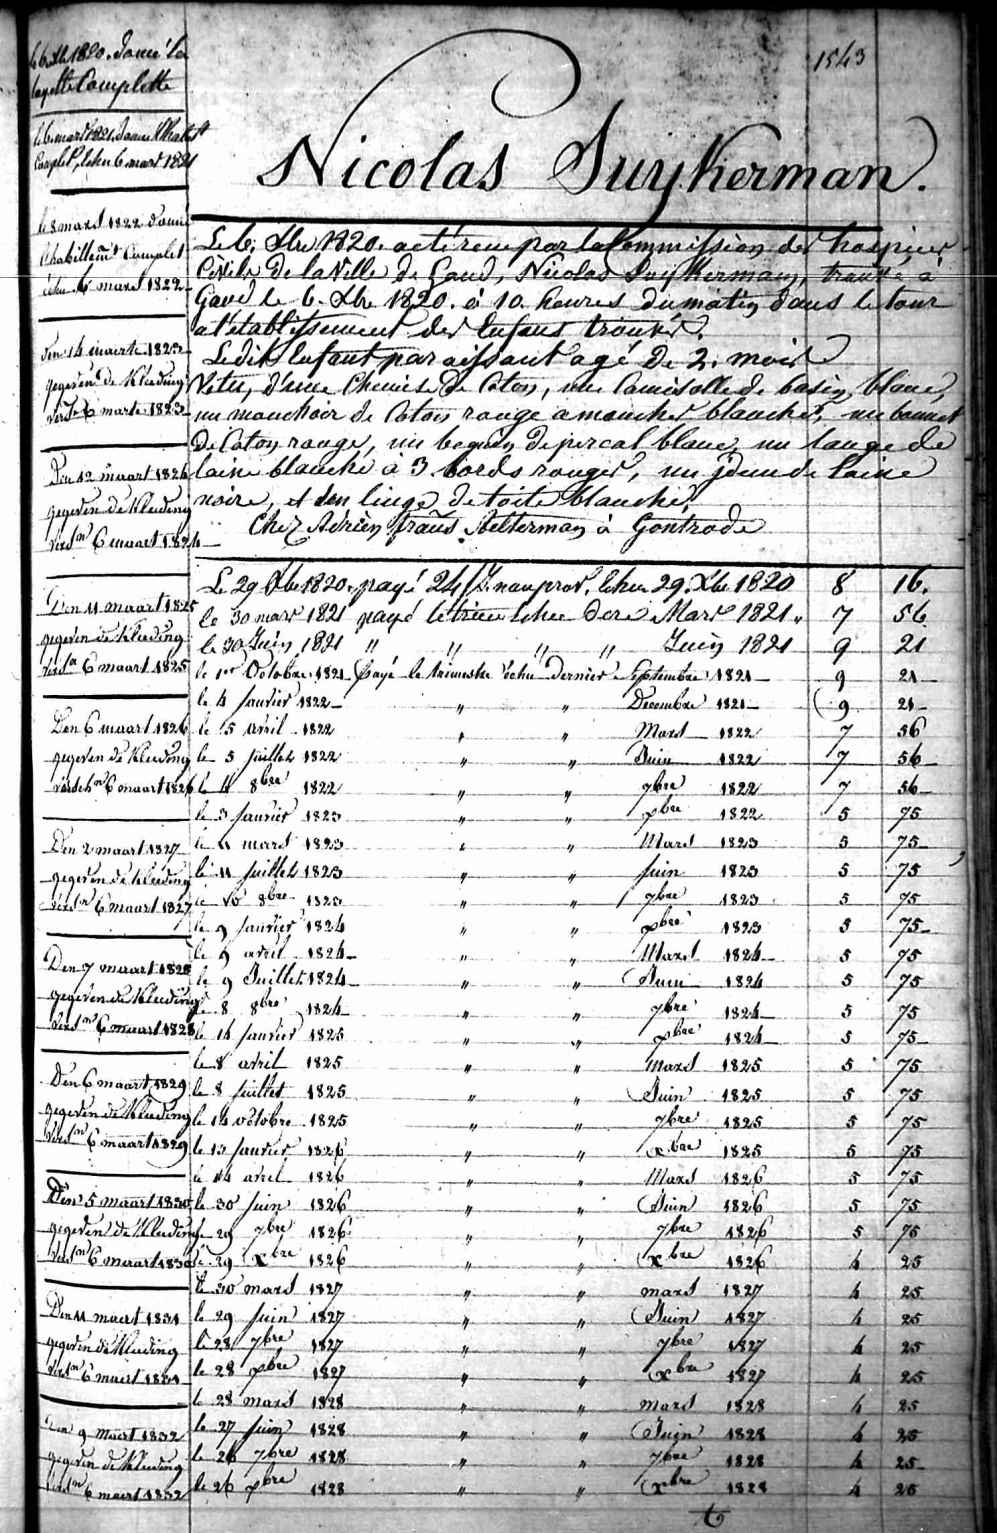 1543
le 6 Xbre 1820. donné la
layette Complette
le 6 mars 1821. donné l'habillt
Complet, échu 6 mars 1821
le 8 mars 1822 donné
l'habillemt Complet
échu 6 mars 1822
Den 14 maerte 1823
gegeven de Kleeding
versn 6 marte 1823
Den 12 maart 1824
gegeven de Kleeding
versn 6 maart 1824
Den 11 maart 1825
gegeven de Kleeding
versn 6 maart 1825
Den 6 maart 1826
gegeven de Kleeding
versch 6 maart 1826
Den 2 maart 1827
gegeven de Kleeding
versn 6 maart 1827
Den 7 maart 1828
gegeven de Kleeding
versn 6 maart 1828
Den 6 maart 1829
gegeven de Kleeding
versn 6 maart 1829
Den 5 maart 1830
gegeven de Kleeding
versn 6 maart 1830
Den 11 maert 1831
gegeven de Kleeding
versn 6 maert 1831
Den 9 maert 1832
gegeven de Kleeding
versn 6 maert 1832
Nicolas Suykerman.
Le 6. Xbre 1820. acté reçu par la Commission des hospices
Civils de la Ville de Gand, Nicolas Suykerman, trouvé à
Gand le 6. Xbre 1820. à 10. heures du matin dans le tour
a l'établissement des Enfans trouvés.
Ledit Enfant paraissant agé De 2. mois
Vetu, d'une Chemise de Coton, une Camisolle de basin blanc,
un mouchoir de Coton rouge a mouches blanches, un bonnet
De Coton rouge, un beguin de percal blanc, un lange de
laine blanche à 3 bords rouges, un idem de laine
noire, et d'un linge de toile blanche,
Chez Adrien frans Aelterman à Gontrode
Le 29 Xbre 1820. payé 24 échu 29. Xbre 1820 8 16.
le 30 mars 1821 payé le trime échu dere Mars 1821 7 56
le 30 Juin 1821 " " " " Juin 1821 9 21
le 1er Octobre 1821 Payé le trimestre échu dernier Septembre 1821 9 21
le 4 Janvier 1822 " " Decembre 1821 9 21
le 5 avril 1822 " " Mars 1822 7 56
le 5 Juillet 1822 " " Juin 1822 7 56
le 4 8bre 1822 " " 7bre 1822 7 56
le 3 Janvier 1823 " " Xbre 1822 5 75
le 4 mars 1823 " " Mars 1823 5 75
le 11 Juillet 1823 " " Juin 1823 5 75
le 10 8bre 1823 " " 7bre 1823 5 75
le 9 Janvier 1824 " " Xbre 1823 5 75
le 9 avril 1824 " " Mars 1824 5 75
le 9 Juillet 1824 " " Juin 1824 5 75
le 8 8bre 1824 " " 7bre 1824 5 75
le 14 Janvier 1825 " " Xbre 1824 5 75
le 8 avril 1825 " " Mars 1825 5 75
le 8 Juillet 1825 " " Juin 1825 5 75
le 14 octobre 1825 " " 7bre 1825 5 75
le 13 Janvier 1826 " " Xbre 1825 5 75
le 14 avril 1826 " " Mars 1826 5 75
le 30 Juin 1826 " " Juin 1826 5 75
le 29 7bre 1826 " " 7bre 1826 5 75
le 29 Xbre 1826 " " Xbre 1826 4 25
le 30 mars 1827 " " mars 1827 4 25
le 29 Juin 1827 " " Juin 1827 4 25
le 28 7bre 1827 " " 7bre 1827 4 25
le 28 Xbre 1827 " " Xbre 1827 4 25
le 28 mars 1828 " " mars 1828 4 25
le 27 Juin 1828 " " Juin 1828 4 25
le 26 7bre 1828 " " 7bre 1828 4 25
le 26 Xbre 1828 " " Xbre 1828 4 25